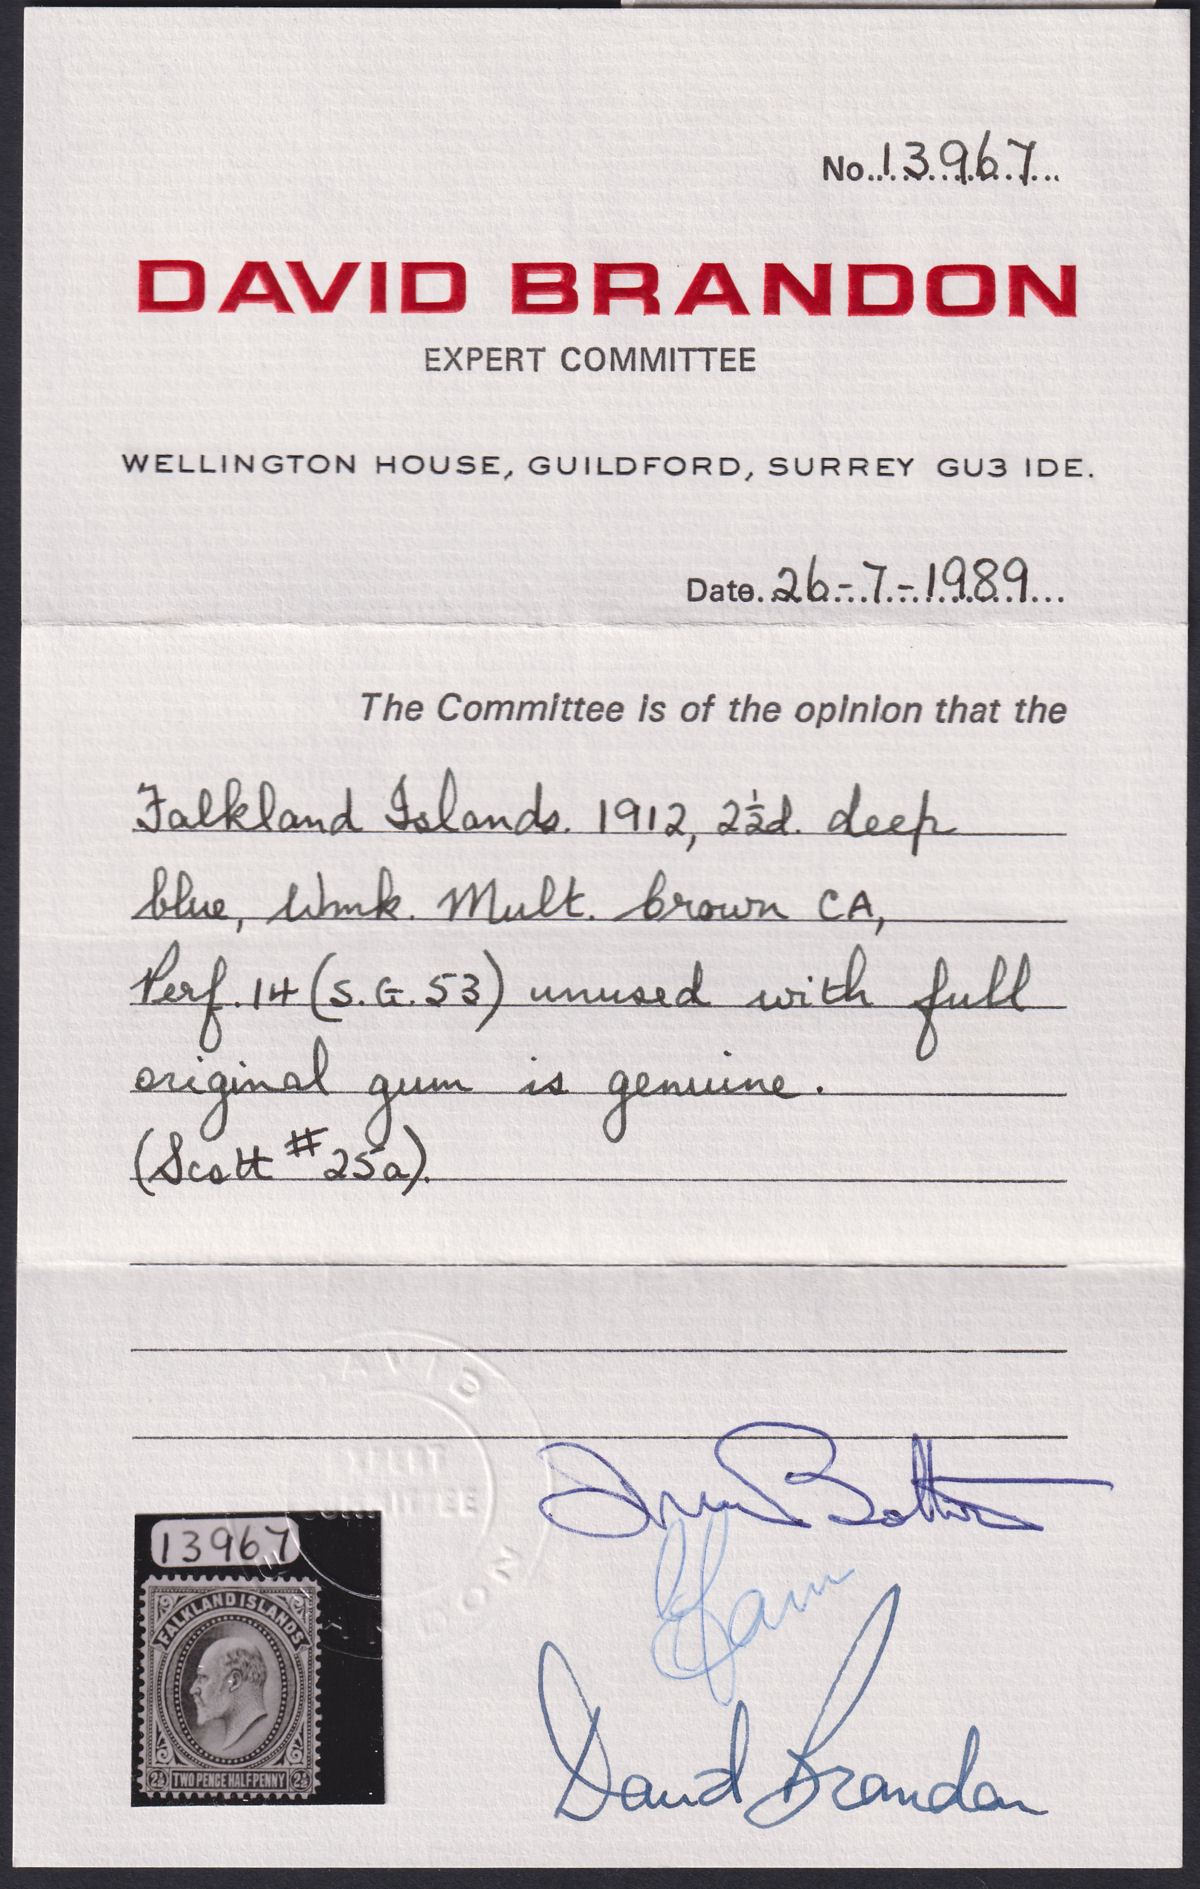 No. 13967
DAVID BRANDON
EXPERT COMMITTEE
WELLINGTON HOUSE, GUILDFORD, SURREY GU3 1DE.
Date. 26-7-1989
The Committee is of the opinion that the
Falkland Islands. 1912, 2½d. deep
blue, Wmk. Mult. brown CA,
Perf. 14 (S.G. 53) unused with full
original gum is genuine.
(Scott #25a).
DAVID
EXPERT
COMMITTEE
13967
FALKLAND ISLANDS
2½ TWO PENCE HALFPENNY 2½
David Brandon